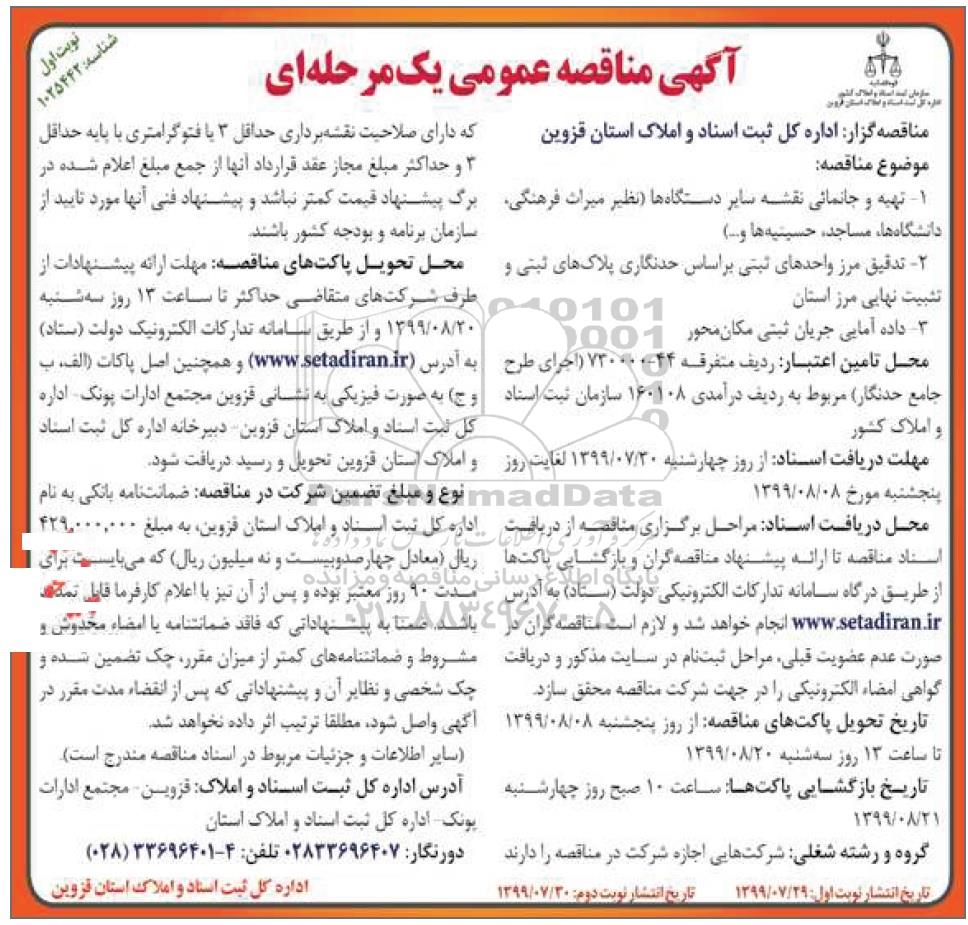 نوبت اول
شناسه: ۱۰۲۵۴۴۲
آگهی مناقصه عمومی یک‌مرحله‌ای
قوه قضاییه
سازمان ثبت اسناد و املاک کشور
اداره کل ثبت اسناد و املاک استان قزوین
مناقصه‌گزار: اداره کل ثبت اسناد و املاک استان قزوین
موضوع مناقصه:
۱- تهیه و جانمائی نقشه سایر دستگاه‌ها (نظیر میراث فرهنگی،
دانشگاه‌ها، مساجد، حسینیه‌ها و...)
۲- تدقیق مرز واحدهای ثبتی براساس حدنگاری پلاک‌های ثبتی و
تثبیت نهایی مرز استان
۳- داده آمایی جریان ثبتی مکان‌محور
محل تامین اعتبار: ردیف متفرقه ۴۴-۷۳۰۰۰۰ (اجرای طرح
جامع حدنگار) مربوط به ردیف درآمدی ۱۶۰۱۰۸ سازمان ثبت اسناد
و املاک کشور
مهلت دریافت اسناد: از روز چهارشنبه ۱۳۹۹/۰۷/۳۰ لغایت روز
پنجشنبه مورخ ۱۳۹۹/۰۸/۰۸
محل دریافت اسناد: مراحل برگزاری مناقصه از دریافت
اسناد مناقصه تا ارائه پیشنهاد مناقصه‌گران و بازگشایی پاکت‌ها
از طریق درگاه سامانه تدارکات الکترونیکی دولت (ستاد) به آدرس
www.setadiran.ir انجام خواهد شد و لازم است مناقصه‌گران در
صورت عدم عضویت قبلی، مراحل ثبت‌نام در سایت مذکور و دریافت
گواهی امضاء الکترونیکی را در جهت شرکت مناقصه محقق سازد.
تاریخ تحویل پاکت‌های مناقصه: از روز پنجشنبه ۱۳۹۹/۰۸/۰۸
تا ساعت ۱۳ روز سه‌شنبه ۱۳۹۹/۰۸/۲۰
تاریخ بازگشایی پاکت‌ها: ساعت ۱۰ صبح روز چهارشنبه
۱۳۹۹/۰۸/۲۱
گروه و رشته شغلی: شرکت‌هایی اجازه شرکت در مناقصه را دارند
که دارای صلاحیت نقشه‌برداری حداقل ۳ یا فتوگرامتری با پایه حداقل
۳ و حداکثر مبلغ مجاز عقد قرارداد آنها از جمع مبلغ اعلام شده در
برگ پیشنهاد قیمت کمتر نباشد و پیشنهاد فنی آنها مورد تایید از
سازمان برنامه و بودجه کشور باشند.
محل تحویل پاکت‌های مناقصه: مهلت ارائه پیشنهادات از
طرف شرکت‌های متقاضی حداکثر تا ساعت ۱۳ روز سه‌شنبه
۱۳۹۹/۰۸/۲۰ و از طریق سامانه تدارکات الکترونیک دولت (ستاد)
به آدرس (www.setadiran.ir) و همچنین اصل پاکات (الف، ب
و ج) به صورت فیزیکی به نشانی قزوین مجتمع ادارات پونک- اداره
کل ثبت اسناد و املاک استان قزوین- دبیرخانه اداره کل ثبت اسناد
و املاک استان قزوین تحویل و رسید دریافت شود.
نوع و مبلغ تضمین شرکت در مناقصه: ضمانت‌نامه بانکی به نام
اداره کل ثبت اسناد و املاک استان قزوین، به مبلغ ۴۲۹,۰۰۰,۰۰۰
ریال (معادل چهارصدوبیست و نه میلیون ریال) که می‌بایست برای
مدت ۹۰ روز معتبر بوده و پس از آن نیز با اعلام کارفرما قابل تمدید
باشد، ضمناً به پیشنهاداتی که فاقد ضمانتنامه یا امضاء مخدوش و
مشروط و ضمانتنامه‌های کمتر از میزان مقرر، چک تضمین شده و
چک شخصی و نظایر آن و پیشنهاداتی که پس از انقضاء مدت مقرر در
آگهی واصل شود، مطلقا ترتیب اثر داده نخواهد شد.
(سایر اطلاعات و جزئیات مربوط در اسناد مناقصه مندرج است).
آدرس اداره کل ثبت اسناد و املاک: قزوین- مجتمع ادارات
پونک- اداره کل ثبت اسناد و املاک استان
دورنگار: ۰۲۸۳۳۶۹۶۴۰۷ تلفن: ۴-۳۳۶۹۶۴۰۱ (۰۲۸)
تاریخ انتشار نوبت اول: ۱۳۹۹/۰۷/۲۹ تاریخ انتشار نوبت دوم: ۱۳۹۹/۰۷/۳۰
اداره کل ثبت اسناد و املاک استان قزوین
ParsNamadData
پایگاه اطلاع رسانی مناقصه و مزایده
۰۲۱-۸۸۳۴۹۶۷۰-۵